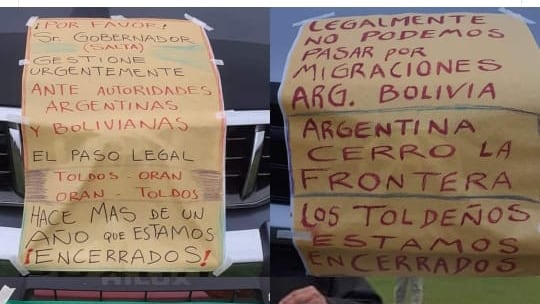 ¡POR FAVOR!
Sr. GOBERNADOR
(SALTA)
GESTIONE
URGENTEMENTE
ANTE AUTORIDADES
ARGENTINAS
Y BOLIVIANAS
EL PASO LEGAL
TOLDOS - ORAN
ORAN - TOLDOS
HACE MAS DE UN
AÑO QUE ESTAMOS
¡ENCERRADOS!
HILUX
LEGALMENTE
NO PODEMOS
PASAR POR
MIGRACIONES
ARG. BOLIVIA
ARGENTINA
CERRO LA
FRONTERA
LOS TOLDEÑOS
ESTAMOS
ENCERRADOS